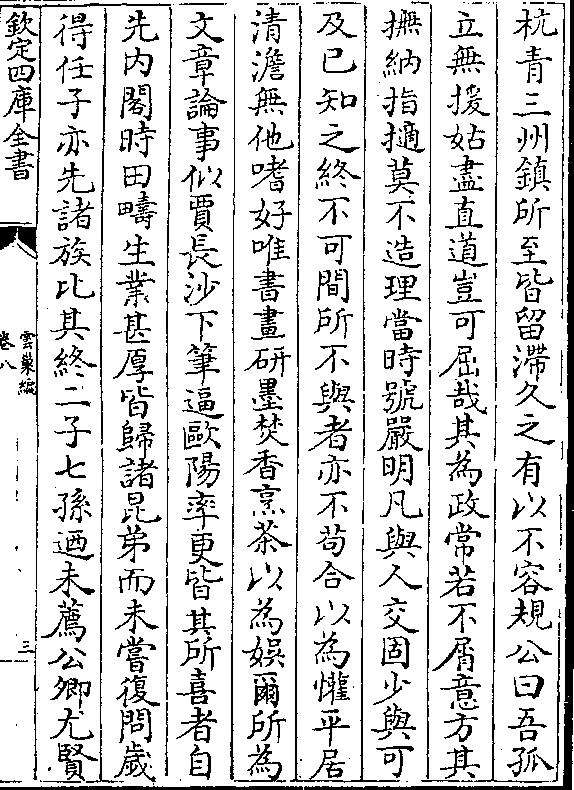 杭青三州鎮所至皆留滯久之有以不容規公曰吾孤
立無援姑盡直道豈可屈哉其為政常若不屑意方其
撫納指擿莫不造理當時號嚴明凡與人交固少與可
及已知之終不可間所不與者亦不苟合以為懽平居
清澹無他嗜好唯書畫研墨焚香烹茶以為娛爾所為
文章論事似賈長沙下筆逼歐陽率更皆其所喜者自
先内閣時田疇生業甚厚皆歸諸昆弟而未嘗復問歲
得任子亦先諸族比其終二子七孫迺未薦公卿尤賢
欽定四庫全書
雲巢編
卷八
三